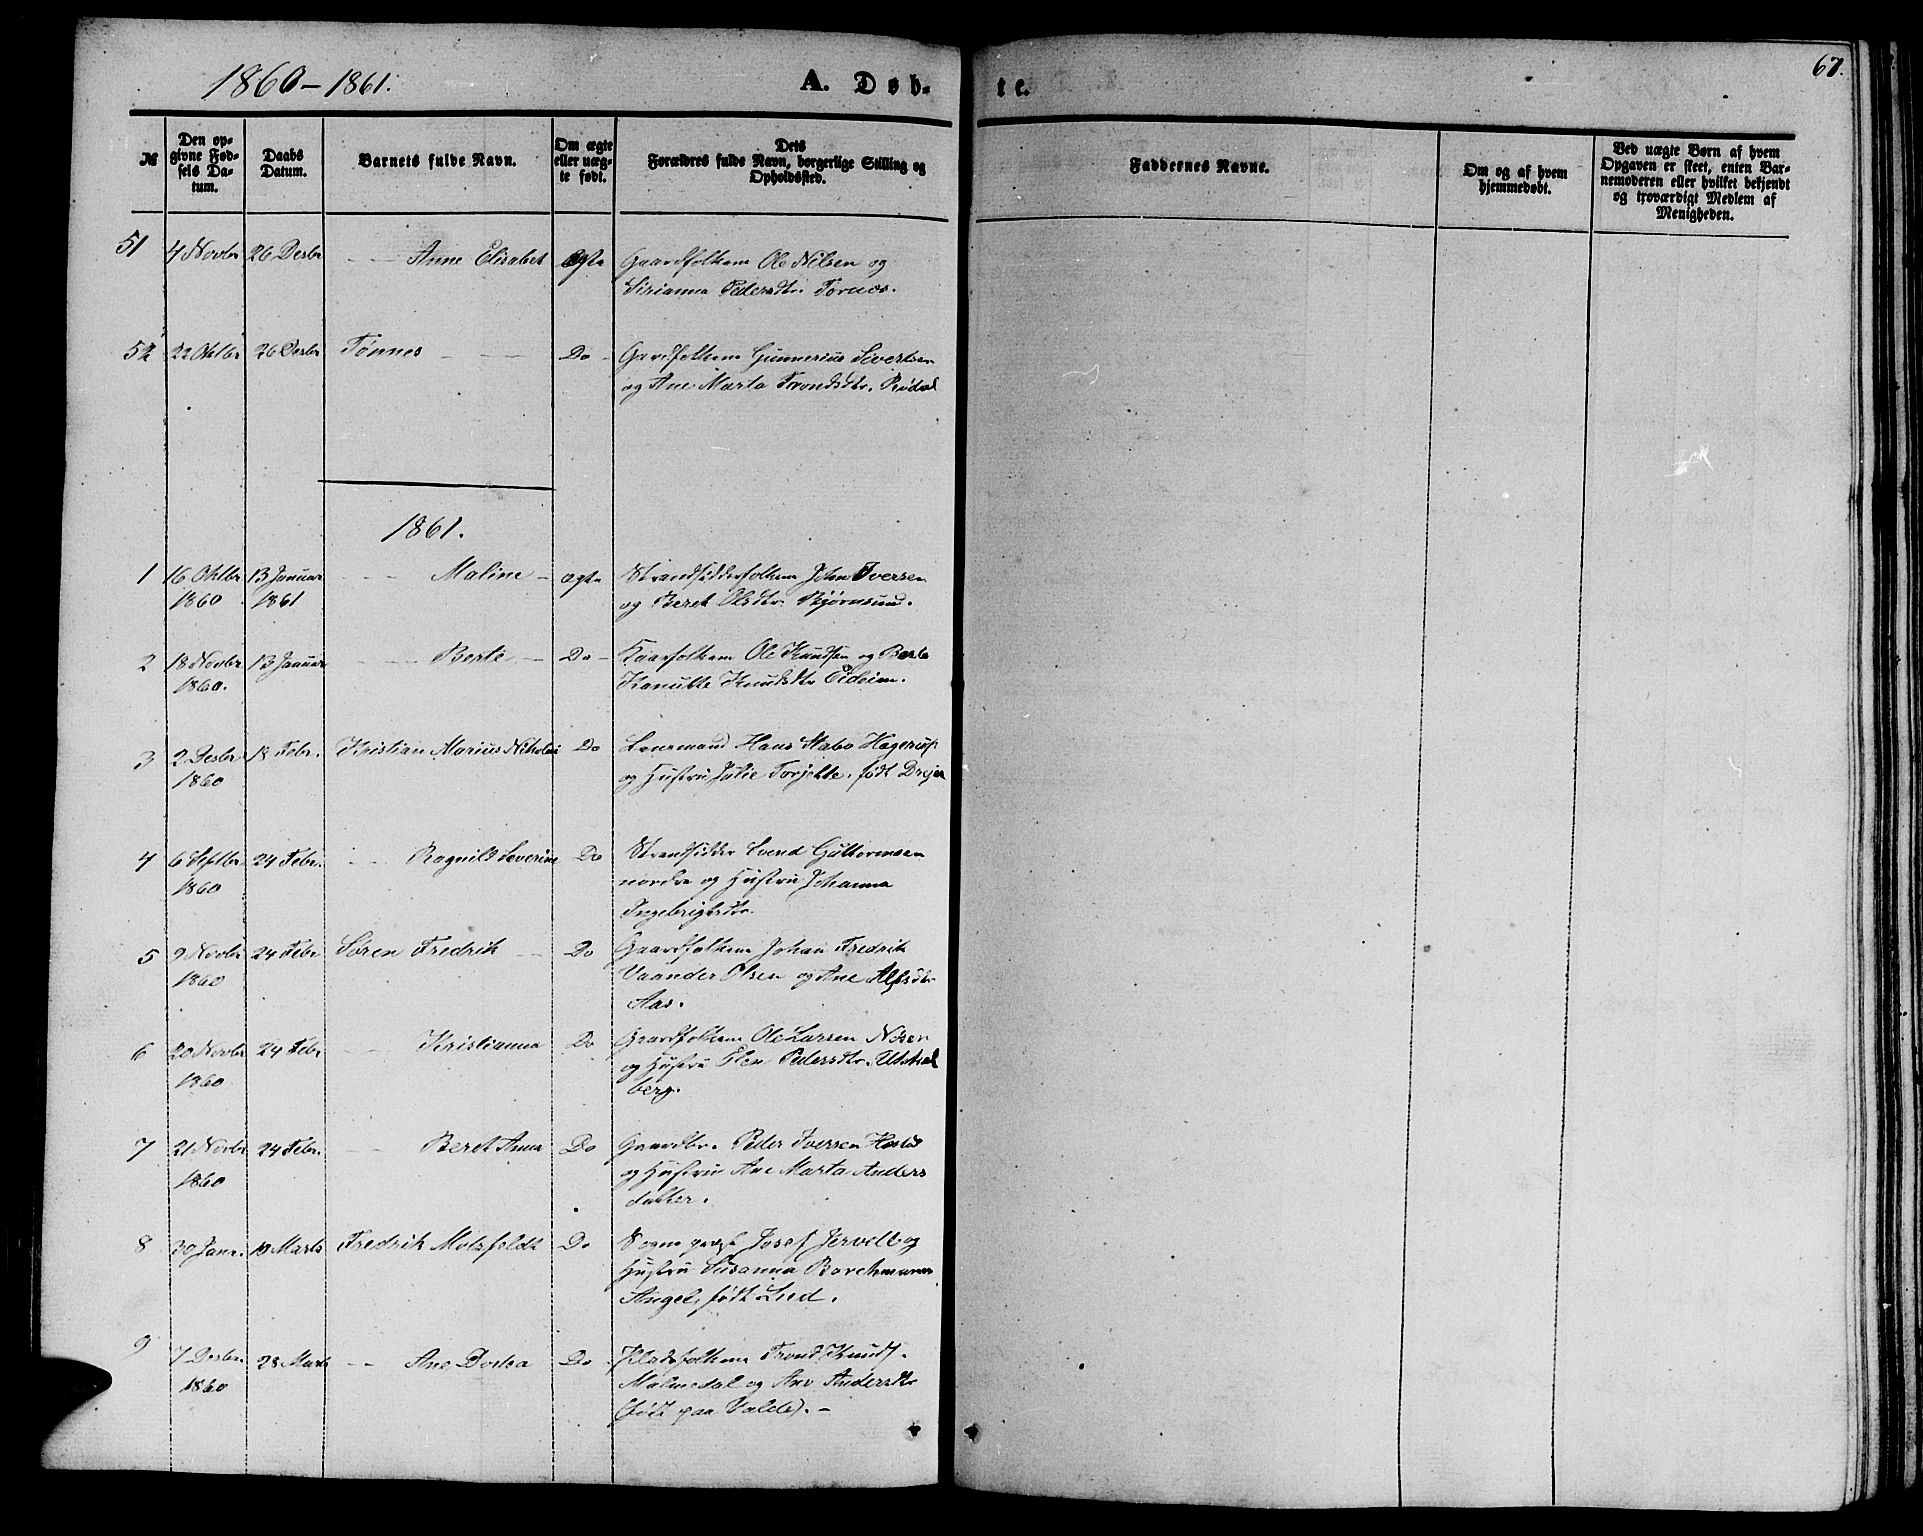 1860-1861.
A. Døb-
te.
67.
№
Den op-
givne Fød-
sels Da-
tum.
Daabs
Datum.
Barnets fulde Navn.
Om ægte
eller uæg-
te født.
Dets
Forældres fulde Navn, borgerlige Stilling og
Opholdssted.
Faddernes Navne.
Om og af hvem
hjemmedøbt.
Ved uægte Børn af hvem
Opgaven er skeet, enten Bar-
nemoderen eller hvilket bekjendt
og troværdigt Medlem af
Menigheden.
51 4 Novbr 26 Desbr Anne Elisabet ægte Gaardfolkene Ole Nilsen og
Sirianna Pedersdtr. Tornes.
52 22 Oktbr 26 Desbr Tønnes Do Gardfolkene Gunnerius Sivertsen
og Ane Marta Trondsdtr. Rødal
1861.
1 16 Oktbr 13 Januar Maline ægte Strandsidderfolkene John Iversen
1860 1861 og Beret Olsdtr. Bjørnsund.
2 18 Novbr 13 Januar Berte Do Kaarfolkene Ole Knudsen og Berte
1860. Kanutte Knudsdtr Eideim.
3 2 Desbr 18 Febr. Kristian Marius Nikolai Do Lensmand Hans Stabo Hagerup
1860 og Hustru Julie Torjette, født Drejer
4 6 Septbr 24 Febr. Ragnild Severine Do Strandsidder Svend Guttormsen
1860 nordre og Hustru Johanna
Ingebrigtsdtr.
5 9 Novbr 24 Febr Søren Fredrik Do Gaardfolkene Johan Fredrik
1860 Vaander Olsen og Ane Alfsdtr
Aas.
6 20 Novbr 24 Febr Kristianna Do Gaardfolkene Ole Larsen
1860 og Hustru Elen Pedersdtr.
berg.
7 21 Novbr 24 Febr. Beret Anna Do Gaardbr. Peder Iversen
1860 og Hustru Ane Marta Anders
datter.
8 30 Janr. 10 Marts Fredrik Motzfeldt Do Sogneprest Josef Jervell og
Hustru Susanna Borchmanna
Angel, født Lied.
9 7 Desbr 28 Marts Ane Dortea Do Pladsfolkene Trond Knuds.
1860 Malmedal og Ane Andersdtr
(født paa Valde). -